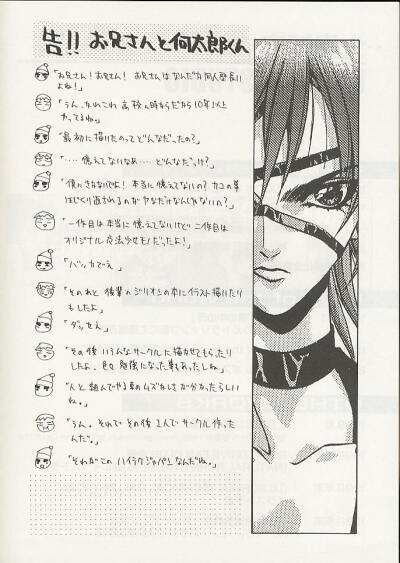 告!! お兄さんと何太郎くん
「お兄さん!お兄さん! お兄さんはなんだか同人歴長い
よね!」
「うん、かれこれ高校の時からだから10年以上
たってるね。」
「最初に描いたのってどんなだったの?」
「‥‥憶えてないなあ‥‥どんなだっけ?」
「僕にきかないでよ! 本当に憶えてないの? カコの事
ほじくり返されるのがヤなだけなんじゃないの?」
「一作目は本当に憶えてないけど二作目は
オリジナル魔法少女モノだったよ!」
「バッカでえ」
「そのあと後輩のジリオンの本にイラスト描いたり
もしたよ」
「ダッセえ」
「その後いろんなサークルに描かせてもらったり
したよ。色々勉強になった事もあったしね」
「人と組んでやる事のムズかしさが分かったらしい
ね。」
「うん。それでその後1人でサークル作った
んだ。」
「それがこのハイラケジャパンなんだね。」